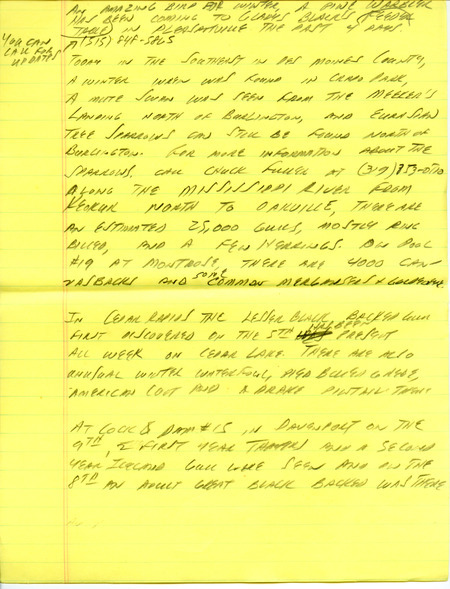 AN AMAZING BIRD FOR WINTER, A PINE WARBLER
HAS BEEN COMING TO GLADYS BLACK'S FEEDER
TABLE IN PLEASANTVILLE THE PAST 4 DAYS.
YOU CAN
CALL FOR
UPDATES
(515) 848-5865
TODAY IN THE SOUTHEAST IN DES MOINES COUNTY,
A WINTER WREN WAS FOUND IN CRAPO PARK,
A MUTE SWAN WAS SEEN FROM THE MEEKER'S
LANDING NORTH OF BURLINGTON, AND EURASIAN
TREE SPARROWS CAN STILL BE FOUND NORTH OF
BURLINGTON. FOR MORE INFORMATION ABOUT THE
SPARROWS, CALL CHUCK FULLER AT (319) 853-
ALONG THE MISSISSIPPI RIVER FROM
KEOKUK NORTH TO OAKVILLE, THERE ARE
AN ESTIMATED 25,000 GULLS, MOSTLY RING
BILLED, AND A FEW HERRINGS. ON POOL
#19 AT MONTROSE, THERE ARE 4000 CAN-
VASBACKS AND SOME COMMON MERGANSERS & GOLDENEYE.
IN CEDAR RAPIDS THE LESSER BLACK BACKED GULL
FIRST DISCOVERED ON THE 5TH HAS BEEN PRESENT
ALL WEEK ON CEDAR LAKE. THERE ARE ALSO
UNUSUAL WINTER WATERFOWL, PIED BILLED GREBE,
AMERICAN COOT AND A DRAKE PINTAIL THERE
AT LOCK & DAM #15, IN DAVENPORT ON THE
9TH, 2 FIRST YEAR THAYERS AND A SECOND
YEAR ICELAND GULL WERE SEEN AND ON THE
8TH AN ADULT GREAT BLACK BACKED WAS THERE